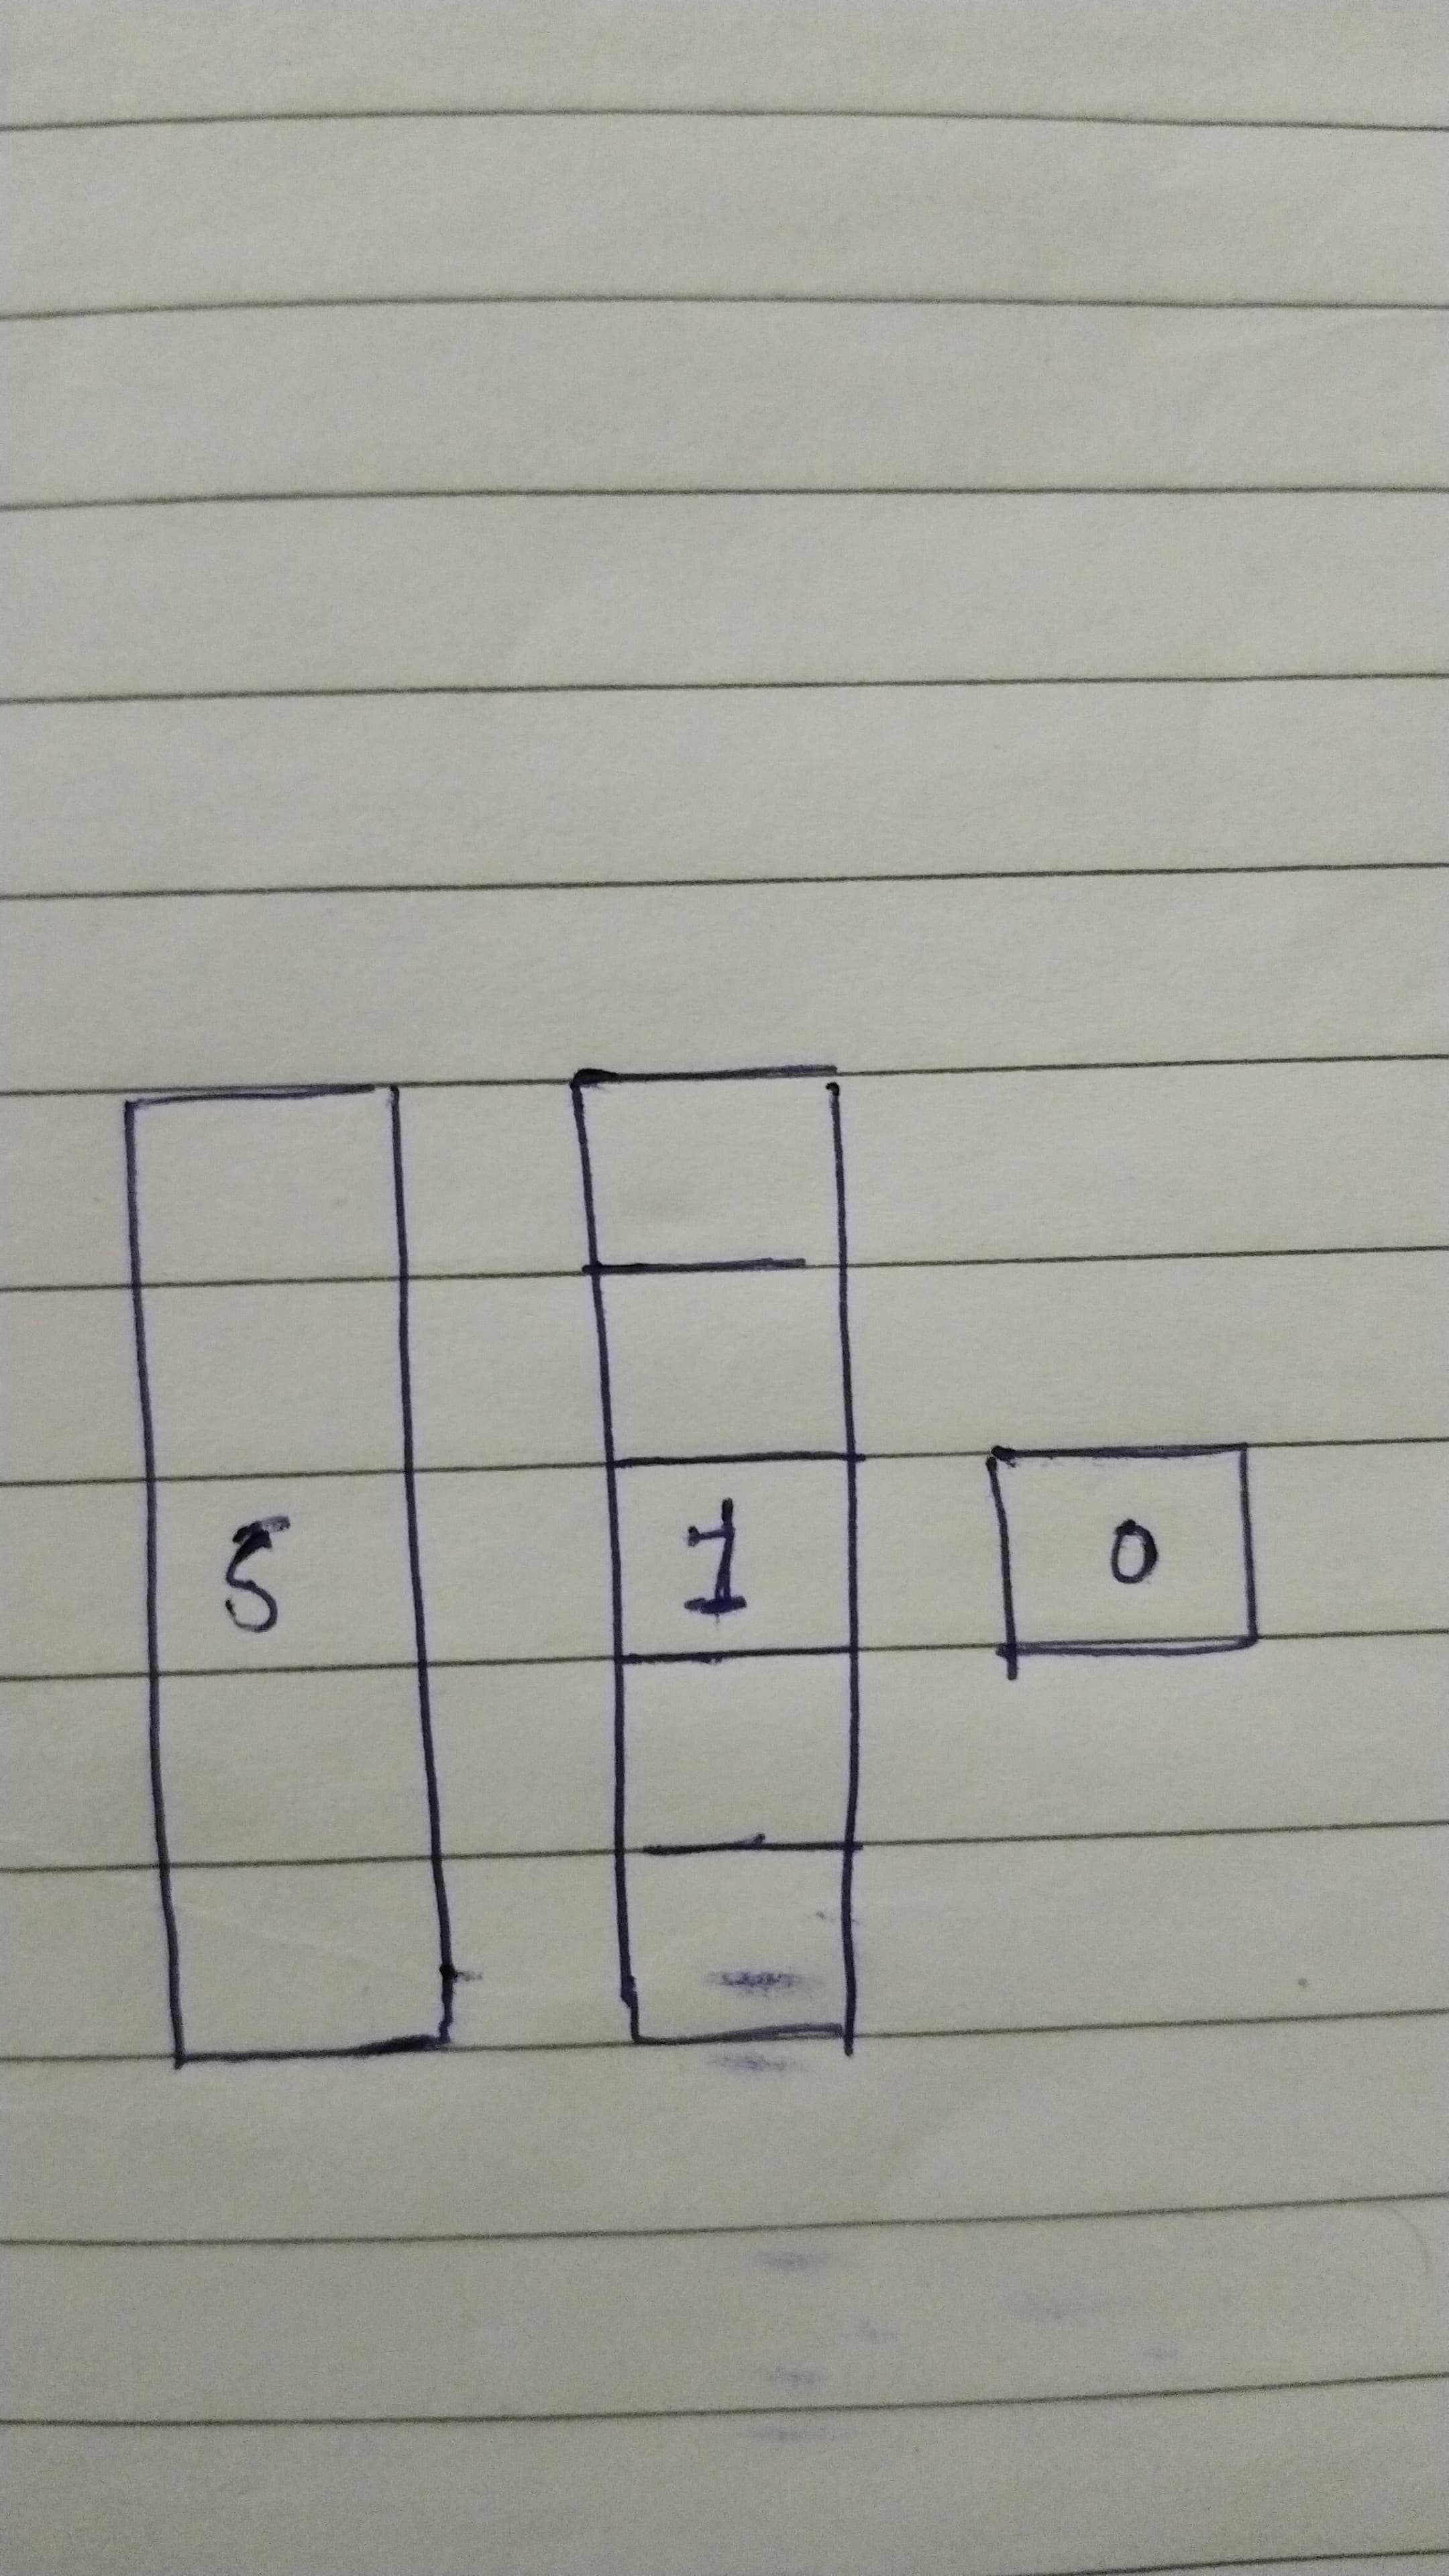 5 1 0